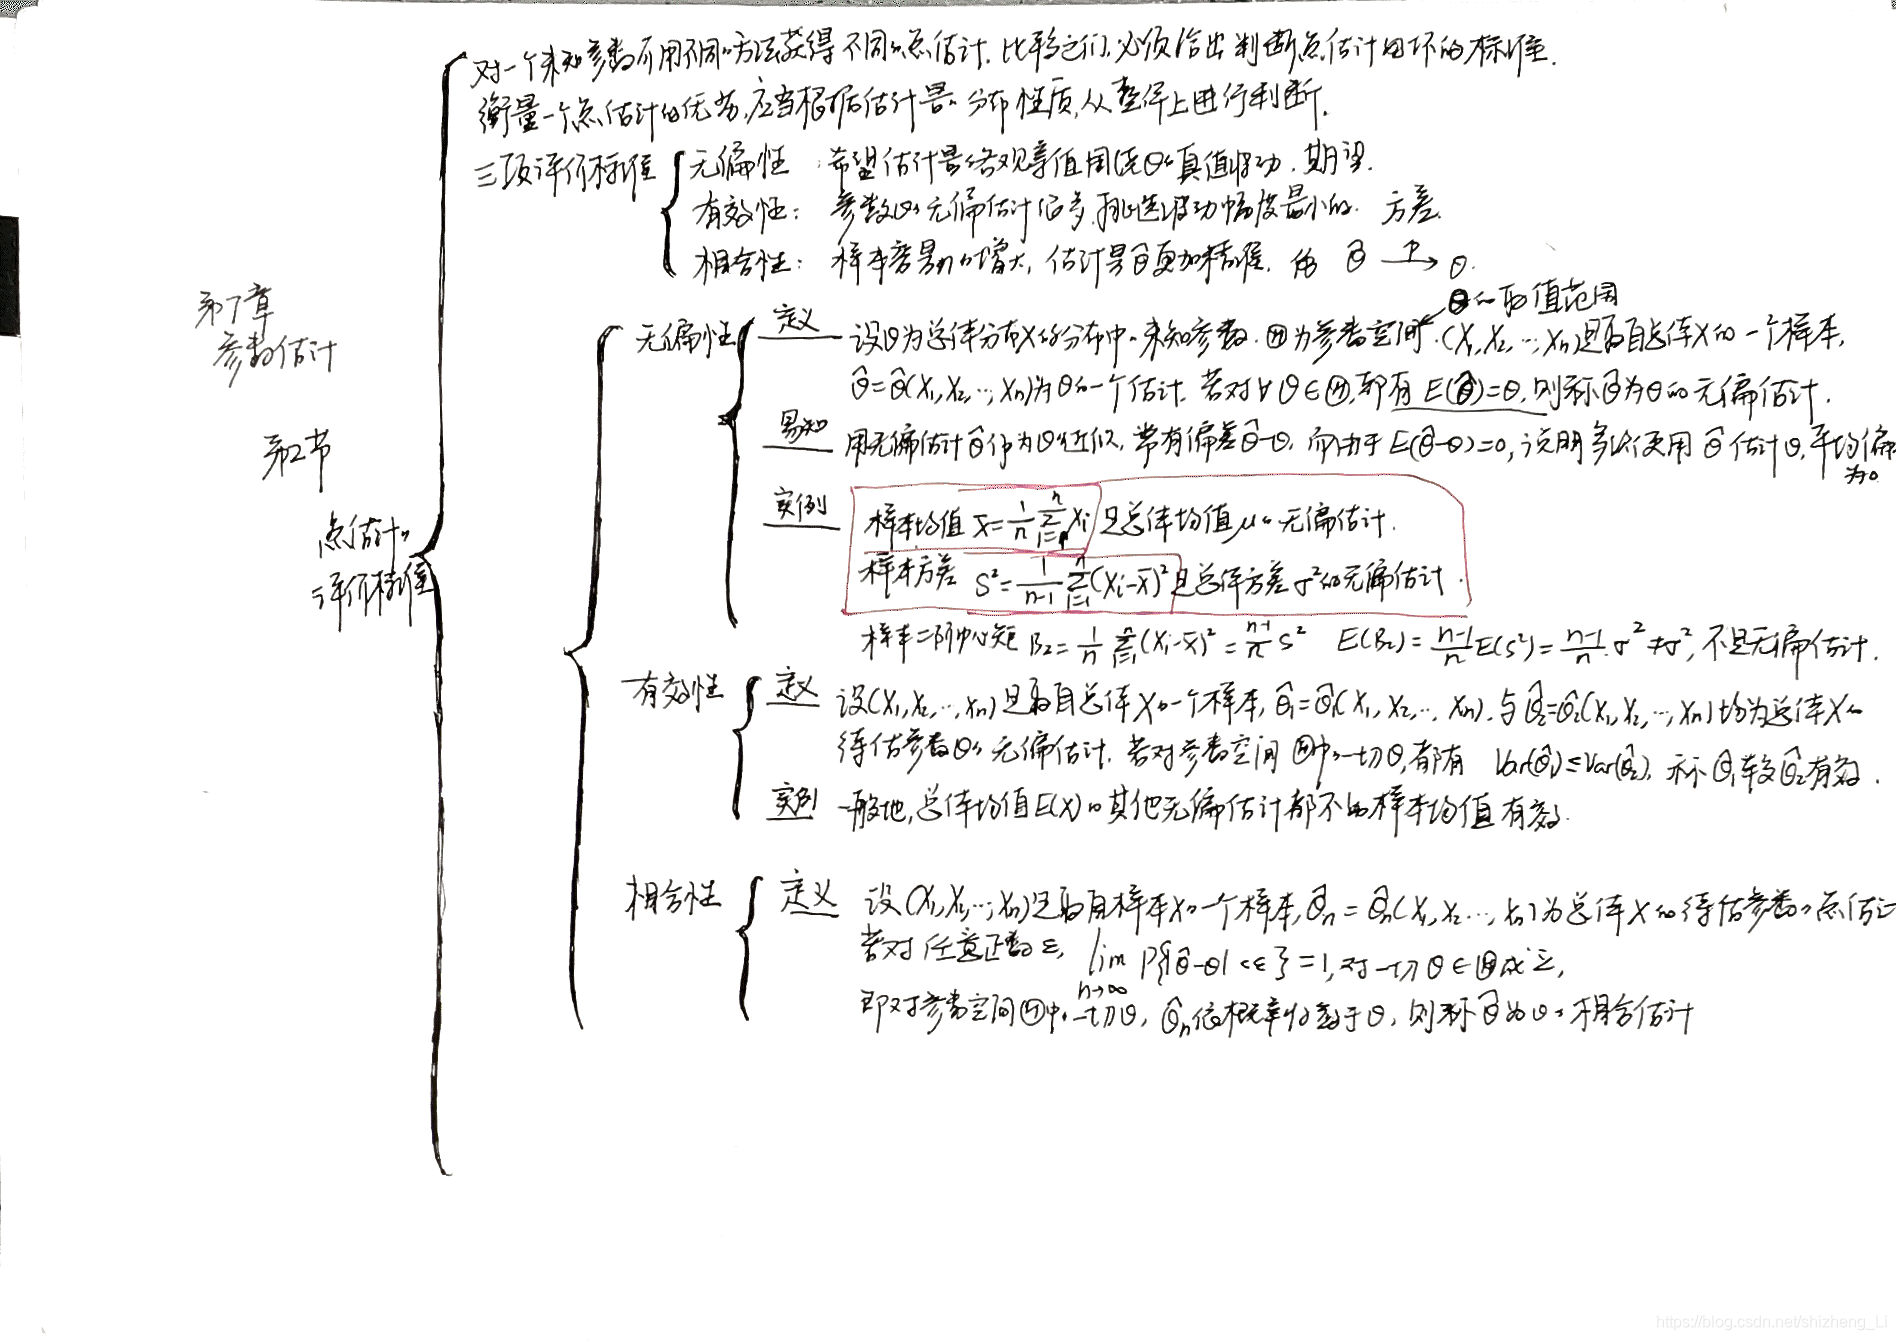 对一个未知参数可用不同的方法获得不同的点估计. 比较它们,必须给出判断点估计好坏的标准.
衡量一个点估计的优劣,应当根据估计量的分布性质,从整体上进行判断.
三项评价标准
无偏性 :希望估计量的各观察值围绕θ的真值波动. 期望.
有效性: 参数θ的无偏估计很多,挑选波动幅度最小的. 方差.
相合性: 样本容量n的增大, 估计量θ̂更加精准. 的 θ̂ —P→ θ.
第7章
参数估计
第2节
点估计的
评价标准
Θ的取值范围
无偏性
定义 设θ为总体分布X的分布中的未知参数. Θ为参数空间. (X₁,X₂,…,Xn)是取自总体X的一个样本,
θ̂=θ̂(X₁,X₂,…,Xn)为θ的一个估计. 若对∀θ∈Θ,都有E(θ̂)=θ,则称θ̂为θ的无偏估计.
易知 用无偏估计θ̂作为θ的近似, 常有偏差θ̂-θ. 而由于E(θ̂-θ)=0,说明多次使用θ̂估计θ,平均偏
为0
实例 样本均值 x̄=1/n Σᵢ₌₁ⁿ Xi 是总体均值μ的无偏估计.
样本方差 S²=1/(n-1) Σᵢ₌₁ⁿ (Xi-x̄)² 是总体方差σ²的无偏估计.
样本二阶中心矩 B₂=1/n Σᵢ₌₁ⁿ (Xi-x̄)²=(n-1)/n S² E(B₂)=(n-1)/n E(S²)=(n-1)/n σ²≠σ²,不是无偏估计.
有效性
定义 设(X₁,X₂,…,Xn)是取自总体X的一个样本, θ̂₁=θ̂₁(X₁,X₂,…,Xn).与θ̂₂=θ̂₂(X₁,X₂,…,Xn)均为总体X的
待估参数θ的无偏估计. 若对参数空间Θ中的一切θ,都有 Var(θ̂₁)≤Var(θ̂₂), 称θ̂₁较θ̂₂有效.
实例 一般地,总体均值E(X)的其他无偏估计都不如样本均值有效.
相合性
定义 设(X₁,X₂,…,Xn)是取自样本X的一个样本,θ̂n=θ̂n(X₁,X₂…,Xn)为总体X的待估参数的点估计
若对任意正数ε, lim n→∞ P{|θ̂-θ|<ε}=1,对一切θ∈Θ成立,
即对参数空间Θ中的一切θ, θ̂n依概率收敛于θ, 则称θ̂为θ的相合估计
https://blog.csdn.net/shizheng_Li